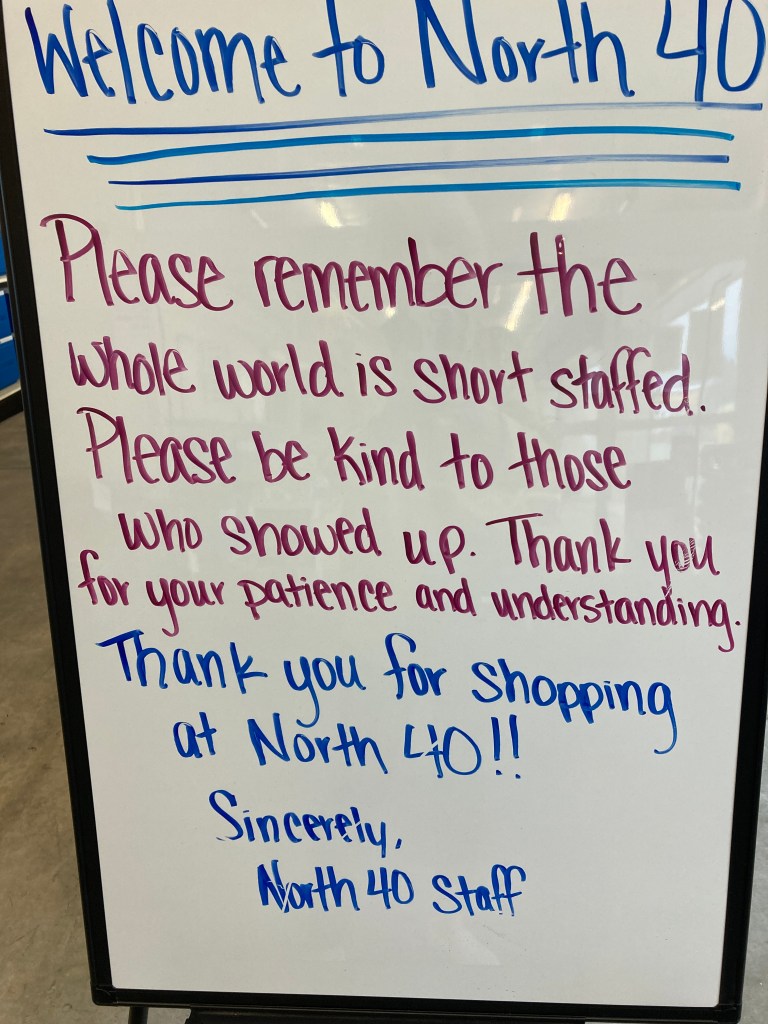 Welcome to North 40
Please remember the
whole world is short staffed.
Please be kind to those
who showed up. Thank you
for your patience and understanding.
Thank you for shopping
at North 40!!
Sincerely,
North 40 Staff